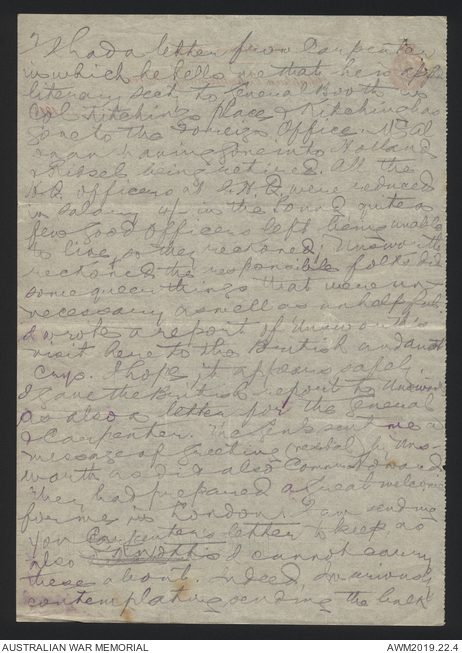 7 I had a letter from Carpenter
in which he tells me that he is appt
literary sect to General Booth in
Col Kitchings place & Kitching has
gone to the Foreign Office. N Sal
man having gone into Holland
& Rissel being retired. All the
H.Q. officers at I.H.Q. were reduced
in salary 4/- in the Pound quite a
few good officers left being unable
to live, so they reckoned. Unsworth
reckoned the responsible folks did
some queer things that were un
necessary as well as unhelpful.
I wrote a report of Unsworth's
visit here to the British and Aust
Crys. I hope it appears safely
I gave the British report to Unsworth
as also a letter for the General
& Carpenter. The Genl sent me a
message of greeting verbal by Uns-
worth as did also Comm Howard
They had prepared a great welcome
for me in London. I am sending
you Carpenters letter to keep as
also this I cannot carry
these about. Indeed, am seriously
contemplating sending the bulk
AUSTRALIAN WAR MEMORIAL
AWM2019.22.4